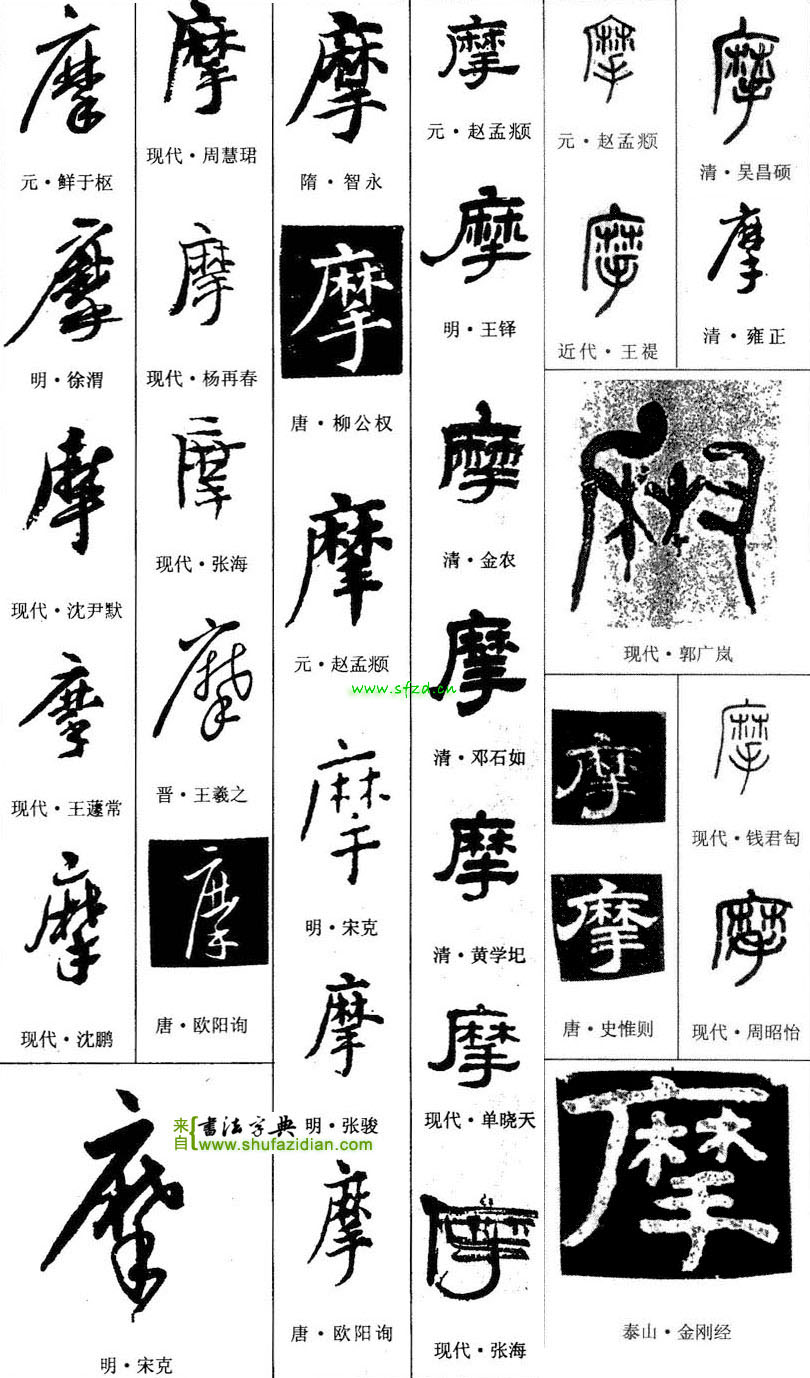 摩
元·鲜于枢
摩
明·徐渭
摩
现代·沈尹默
摩
现代·王蘧常
摩
现代·沈鹏
摩
现代·周慧珺
摩
现代·杨再春
摩
现代·张海
摩
晋·王羲之
摩
唐·欧阳询
摩
明·宋克
摩
隋·智永
摩
唐·柳公权
摩
元·赵孟頫
摩
明·宋克
摩
明·张骏
摩
唐·欧阳询
摩
元·赵孟頫
摩
明·王铎
摩
清·金农
摩
清·邓石如
摩
清·黄学圯
摩
现代·单晓天
摩
现代·张海
摩
元·赵孟頫
摩
近代·王禔
摩
清·吴昌硕
摩
清·雍正
摩
现代·郭广岚
摩
摩
唐·史惟则
摩
现代·钱君匋
摩
现代·周昭怡
摩
泰山·金刚经
www.sfzd.cn
来自{书法字典
www.shufazidian.com